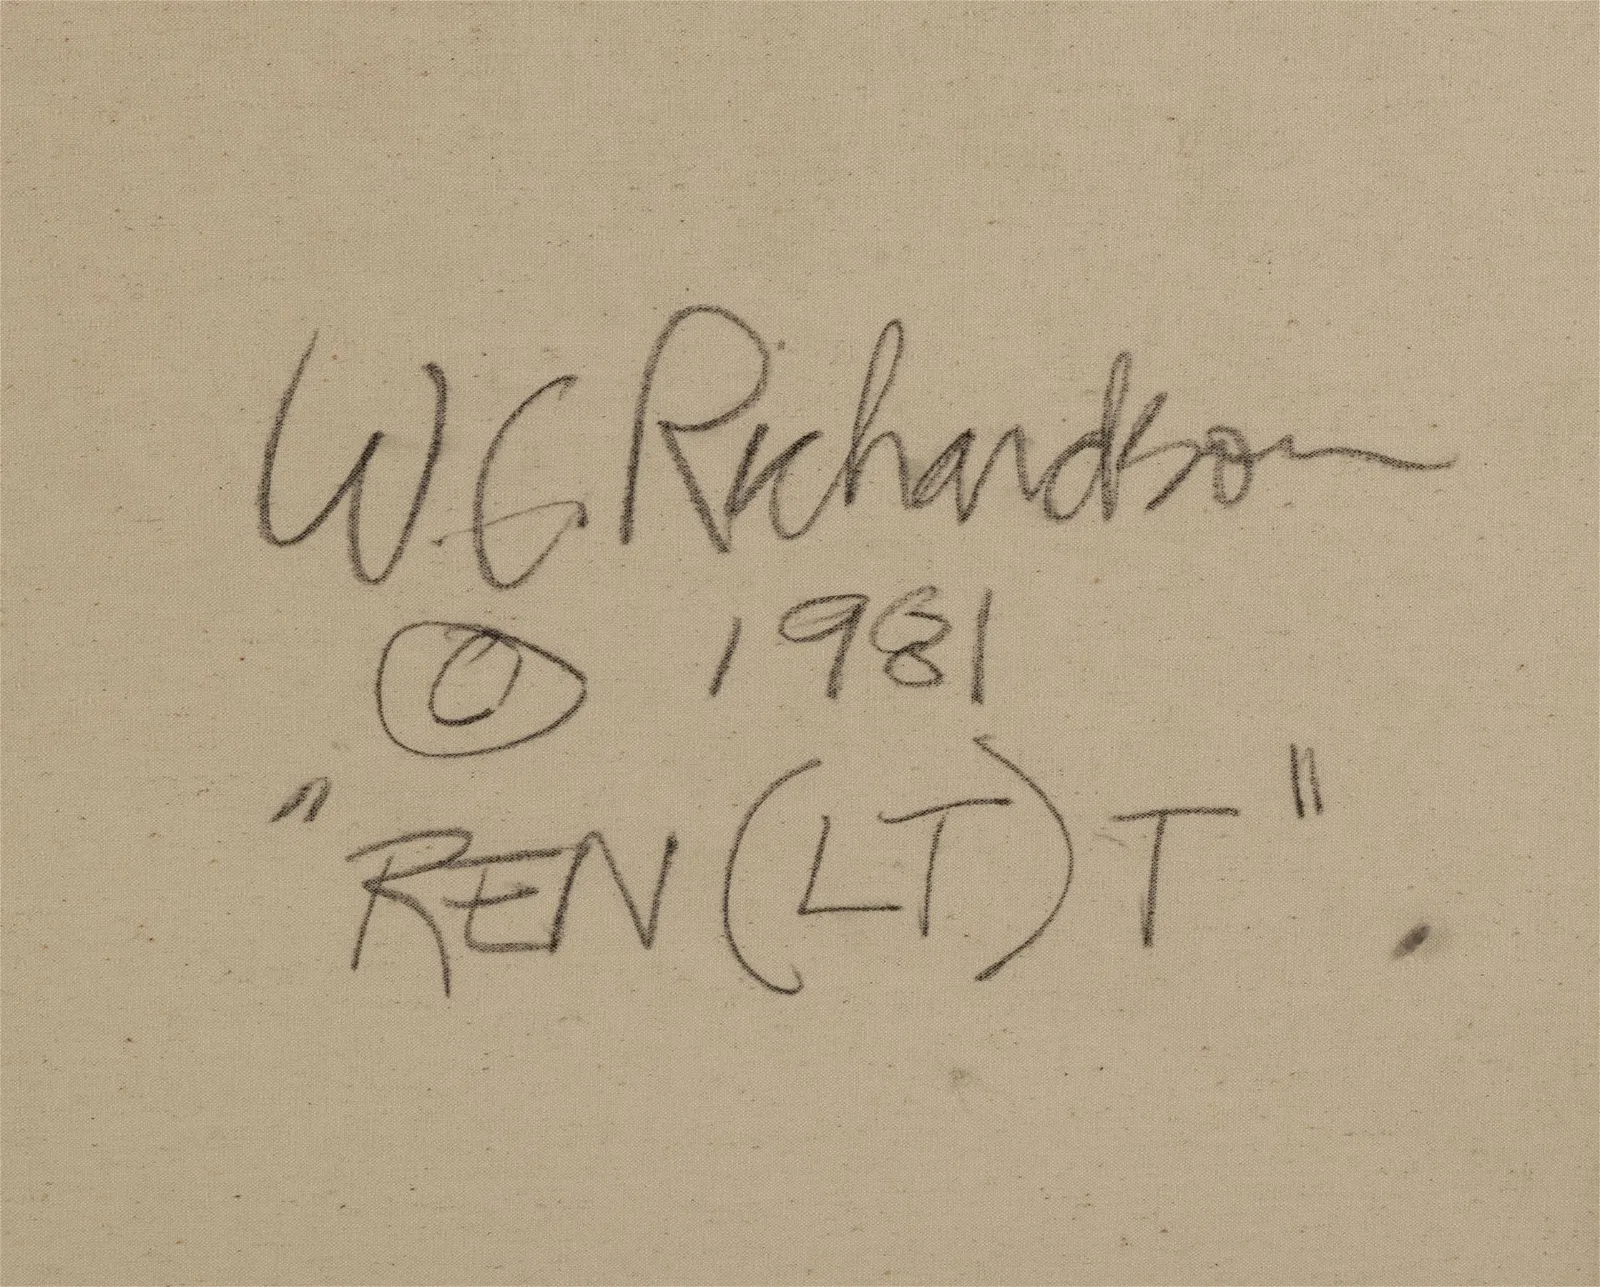 W. G. Richardson
© 1981
"REN (LT) T"